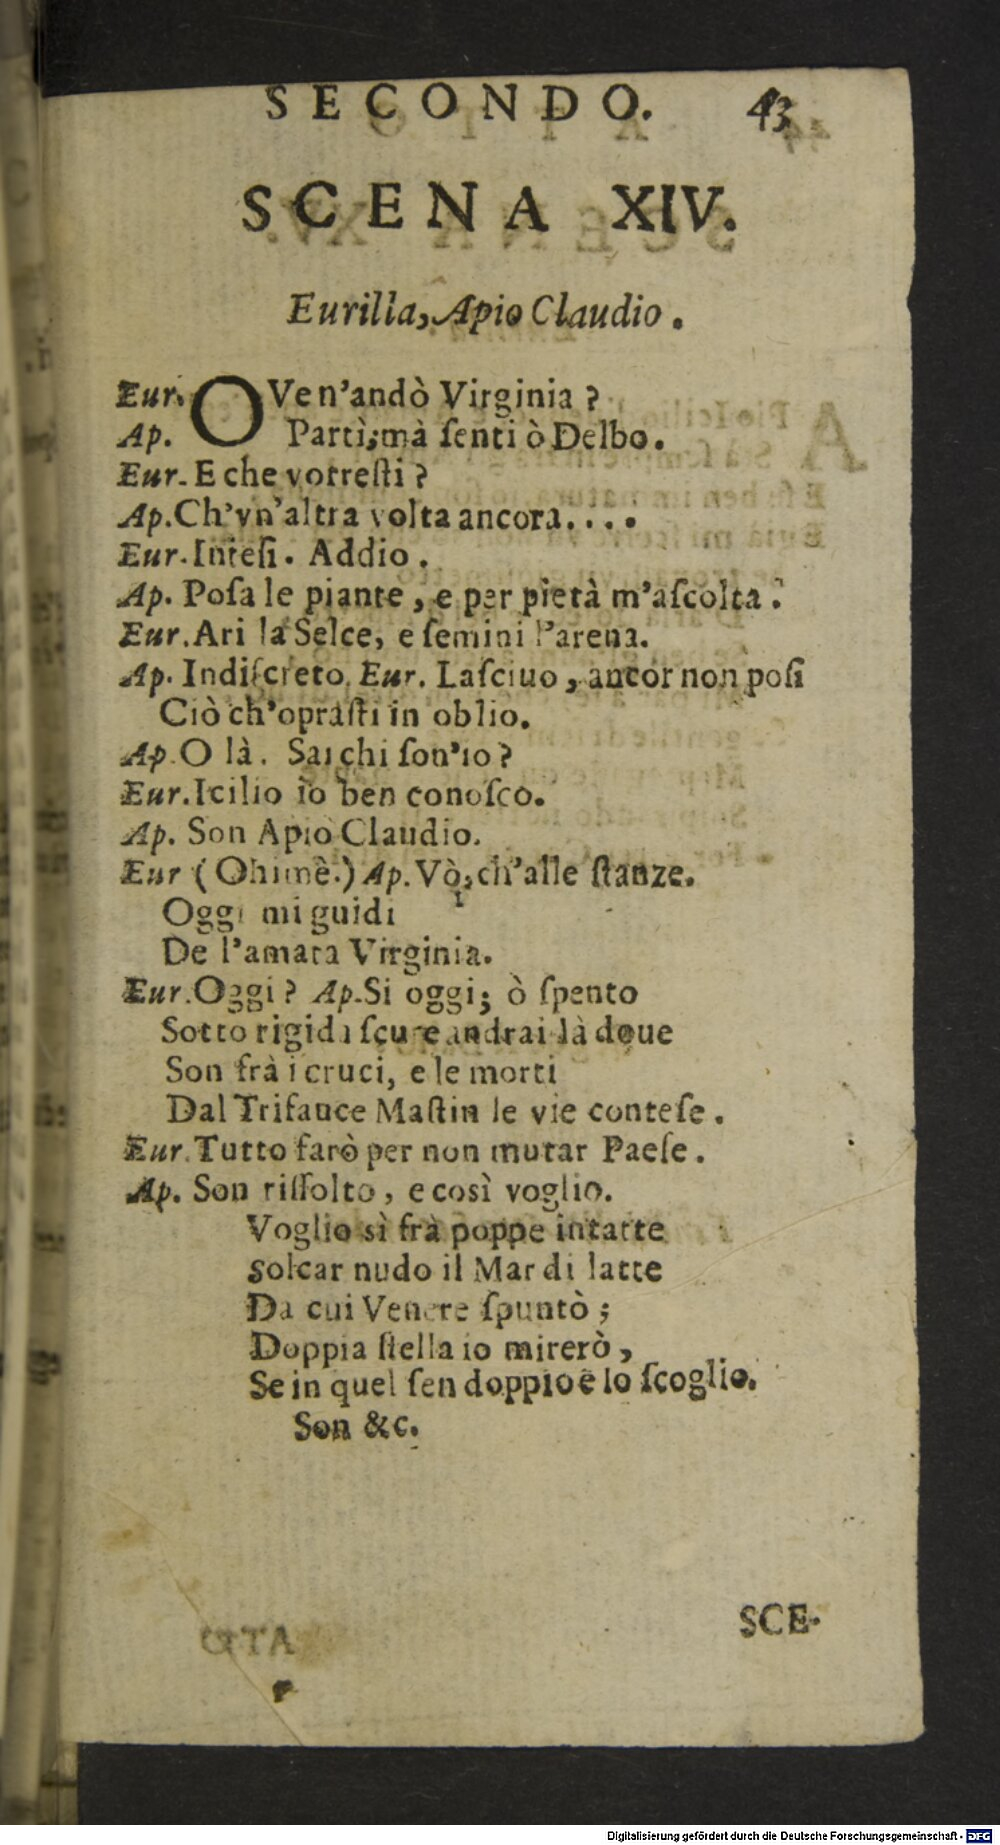 SECONDO. 43
SCENA XIV.
Eurilla, Apio Claudio.
Eur. OVe n'andò Virginia?
Ap. Partì; mà ſenti ò Delbo.
Eur. E che vorreſti?
Ap. Ch'vn'altra volta ancora....
Eur. Inteſi. Addio.
Ap. Poſa le piante, e per pietà m'aſcolta.
Eur. Ari la Selce, e ſemini l'arena.
Ap. Indiſcreto. Eur. Laſciuo, ancor non poſi
Ciò ch'opraſti in oblio.
Ap. O là. Sai chi ſon'io?
Eur. Icilio io ben conoſco.
Ap. Son Apio Claudio.
Eur (Ohimè.) Ap. Vò, ch'alle ſtanze.
Oggi mi guidi
De l'amata Virginia.
Eur. Oggi? Ap. Si oggi; ò ſpento
Sotto rigida ſcure andrai là doue
Son frà i cruci, e le morti
Dal Trifauce Maſtin le vie conteſe.
Eur. Tutto farò per non mutar Paeſe.
Ap. Son riſſolto, e così voglio.
Voglio sì frà poppe intatte
Solcar nudo il Mar di latte
Da cui Venere ſpuntò;
Doppia ſtella io mirerò,
Se in quel ſen doppio è lo ſcoglio.
Son &c.
SCE-
Digitalisierung gefördert durch die Deutsche Forschungsgemeinschaft - DFG